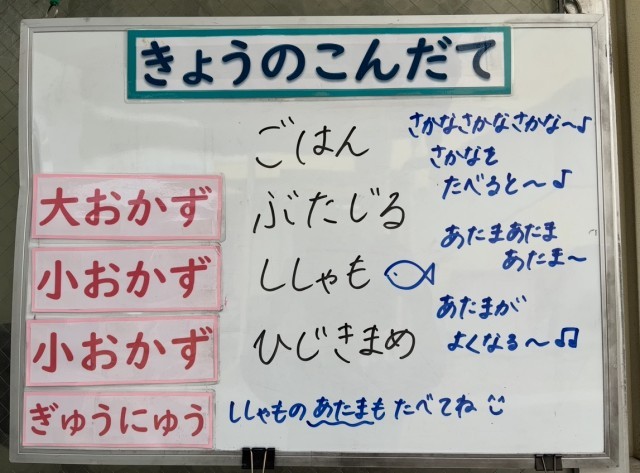 きょうのこんだて
ごはん
大おかず ぶたじる
小おかず ししゃも
小おかず ひじきまめ
ぎゅうにゅう
さかなさかなさかな〜♪
さかなを
たべると〜♪
あたまあたま
あたま〜
あたまが
よくなる〜♫
ししゃもの あたまも たべてね